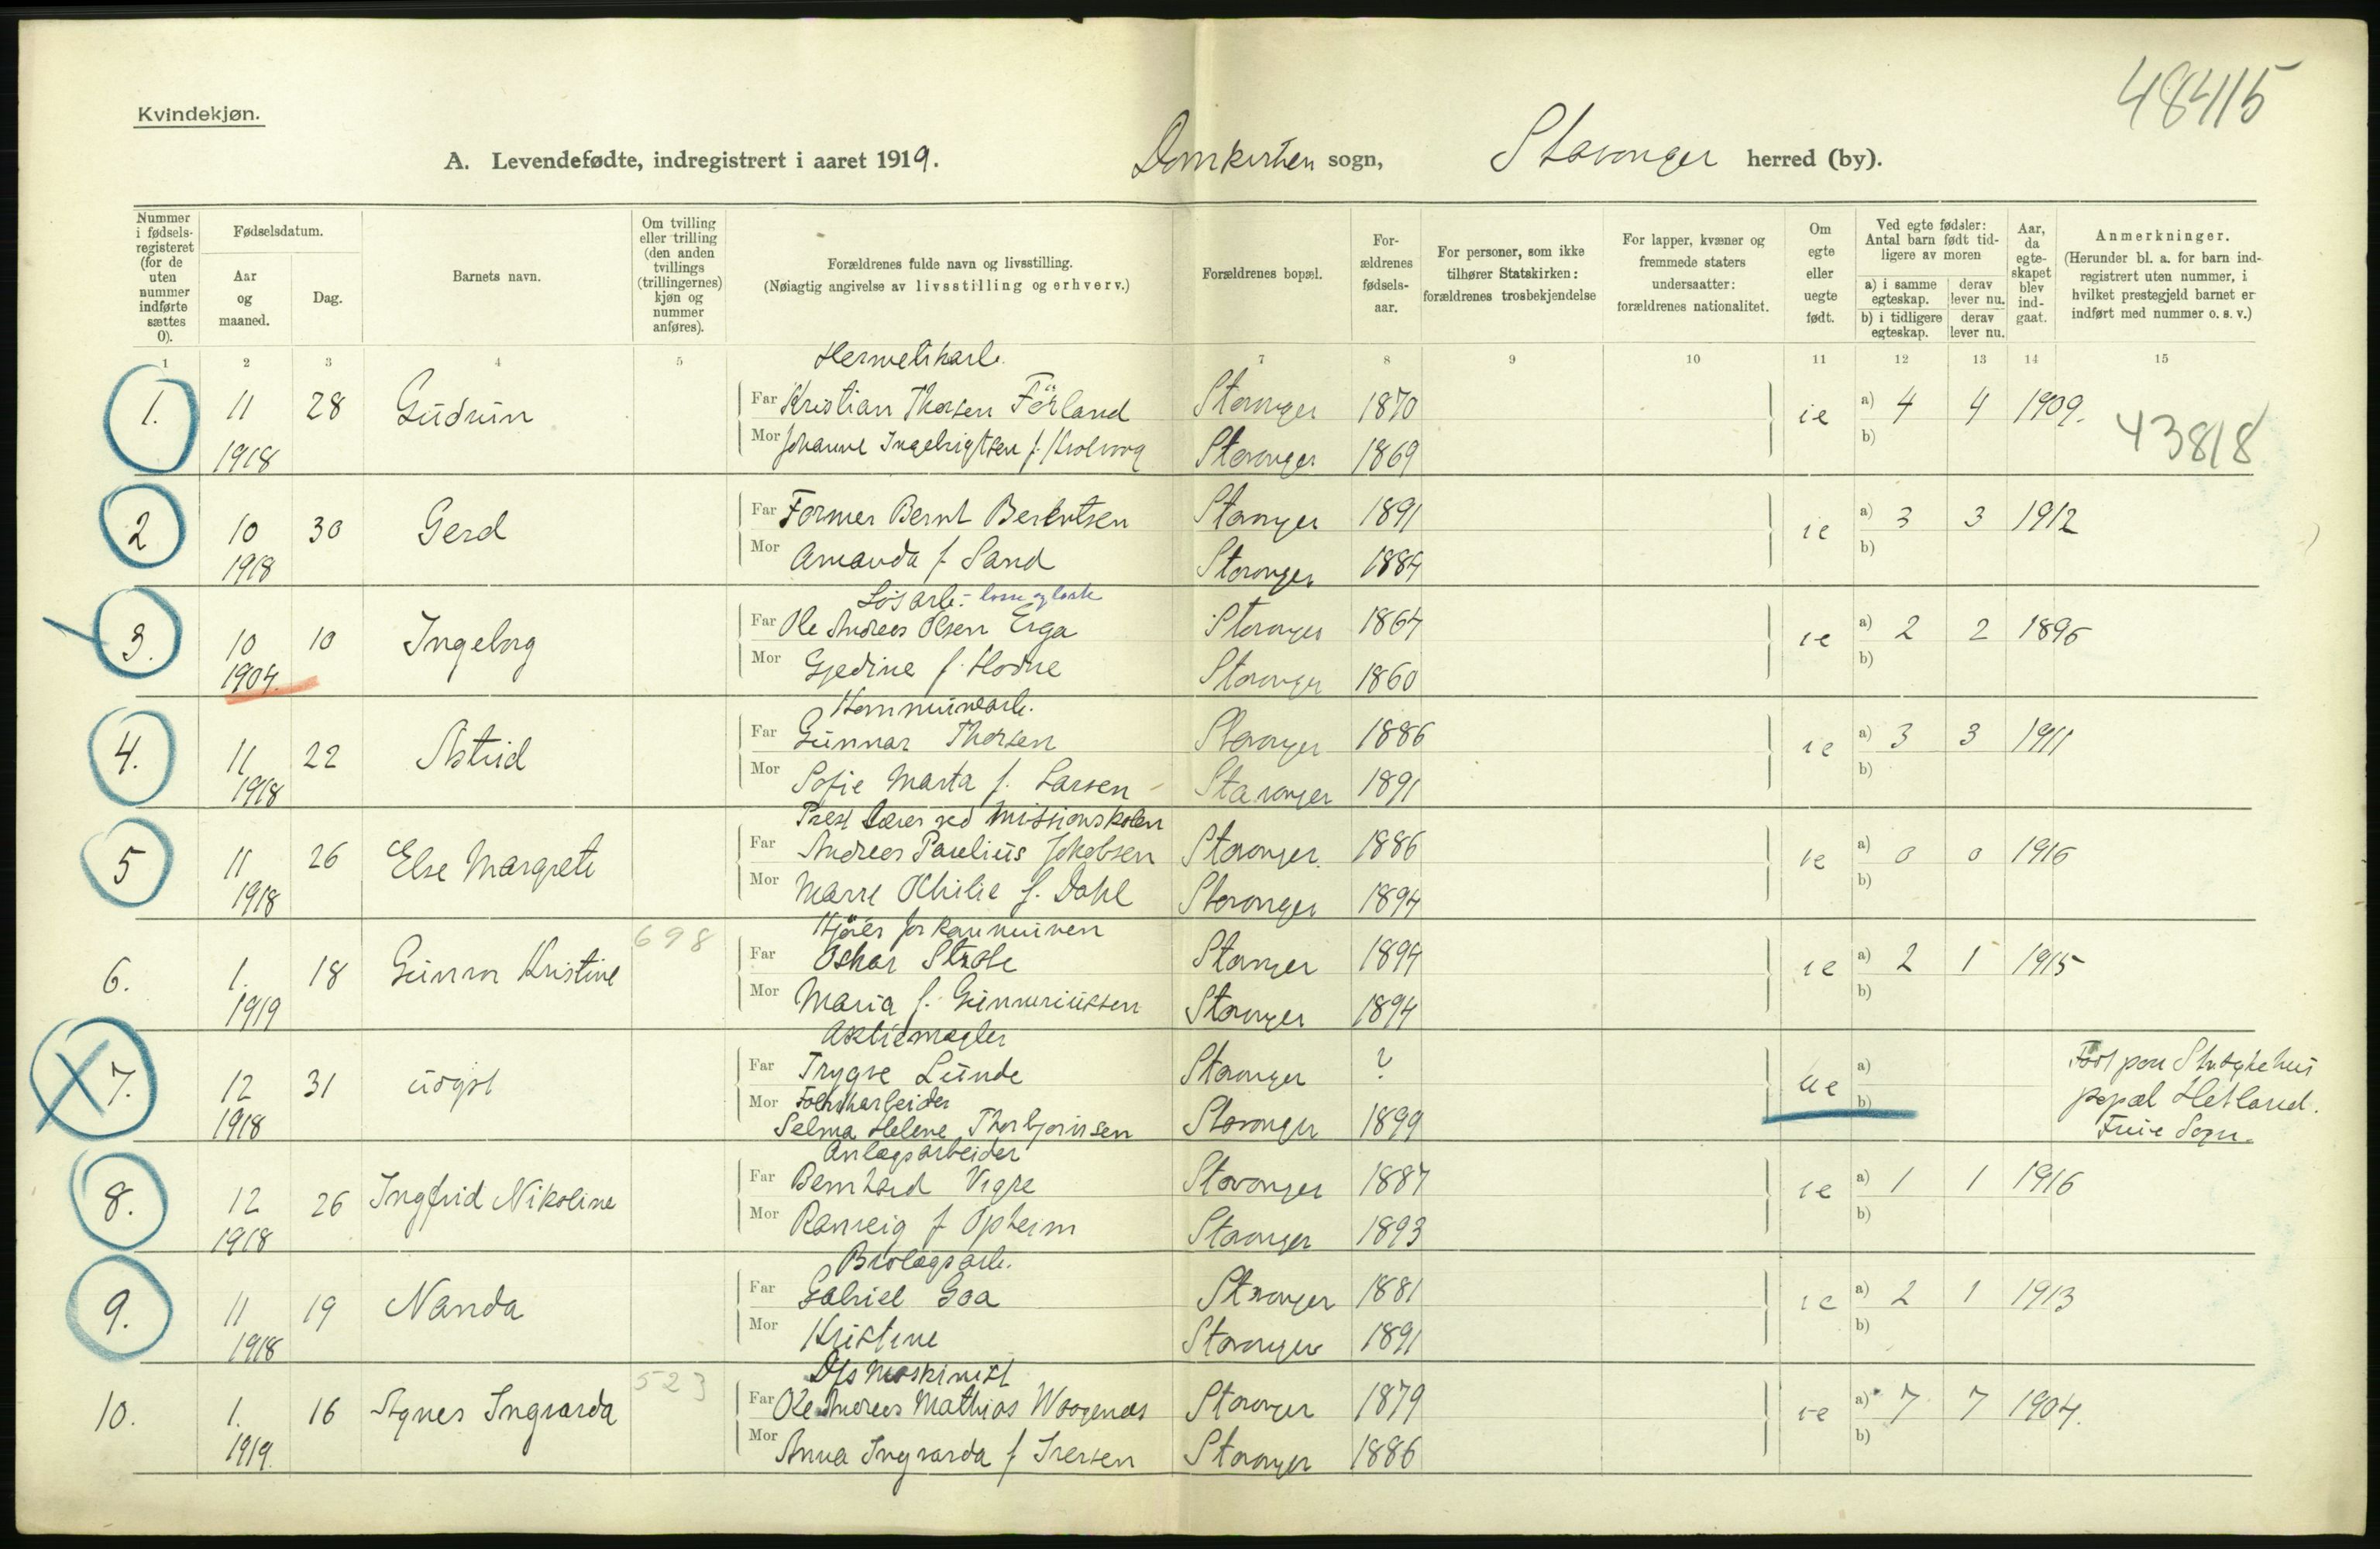 48415
Kvindekjøn.
A. Levendefødte, indregistrert i aaret 1919. Domkirken sogn, Stavanger herred (by).
Nummer i fødselsregisteret (for de uten nummer indførte sættes 0).
Fødselsdatum.
Aar og maaned.
Dag.
Barnets navn.
Om tvilling eller trilling (den anden tvillings (trillingernes) kjøn og nummer anføres).
Forældrenes fulde navn og livsstilling.
(Nøiagtig angivelse av livsstilling og erhverv.)
Forældrenes bopæl.
Forældrenes fødselsaar.
For personer, som ikke tilhører Statskirken: forældrenes trosbekjendelse
For lapper, kvæner og fremmede staters undersaatter: forældrenes nationalitet.
Om egte eller uegte født.
Ved egte fødsler: Antal barn født tidligere av moren
a) i samme egteskap.
b) i tidligere egteskap.
derav lever nu.
derav lever nu.
Aar, da egteskapet blev indgaat.
Anmerkninger.
(Herunder bl. a. for barn indregistrert uten nummer, i hvilket prestegjeld barnet er indført med nummer o. s. v.)
1 2 3 4 5 7 8 9 10 11 12 13 14 15
Hermetikarb.
1. 11 28 Gudrun Far Kristian Thorsen Förland Stavanger 1870 ie a) 4 4 1909.
1918 Mor Johanne Ingebrigtsen f. Stavanger 1869 b)
43818
2 10 30 Gerd Far Former Bernt Berentsen Stavanger 1891 ie a) 3 3 1912
1918 Mor Amanda f. Sand Stavanger 1884 b)
Løsarb. - losse og laste
3. 10 10 Ingeborg Far Ole Andreas Olsen Erga Stavanger 1864 ie a) 2 2 1896
1904. Mor Gjedine f. Hodne Stavanger 1860 b)
Kommunearb.
4. 11 22 Astrid Far Gunnar Thorsen Stavanger 1886 ie a) 3 3 1911
1918 Mor Sofie Marta f. Larsen Stavanger 1891 b)
Prest lærer ved missionsskolen
5 11 26 Else Margrete Far Andreas Paulius Jakobsen Stavanger. 1886 ie a) 0 0 1916
1918 Mor Marie Othilie f. Dahl Stavanger 1894 b)
Kjører for kommunen
6. 1. 18 Gunvor Kristine 698 Far Oskar Stabe Stavanger 1894 ie a) 2 1 1915
1919 Mor Maria f. Gunneriussen Stavanger 1894 b)
Aktiemegler
7. 12 31 udøpt Far Trygve Lunde Stavanger ? ue a) Født paa Sykehus
1918 Mor Fabrikarbeider b) bopæl Hetland.
Selma Helene Thorbjørnsen Stavanger 1899 Frue Sogn.
Anlægsarbeider
8. 12 26 Ingfrid Nikoline Far Bernhard Vigre Stavanger 1887 ie a) 1 1 1916
1918 Mor Ranveig f. Opheim Stavanger 1893 b)
Brolægsarb.
9. 11 19 Nanda Far Gabriel Goa Stavanger 1881 ie a) 2 1 1913
1918 Mor Kristine Stavanger 1891 b)
Dfs Maskinist
10. 1. 16 Agnes Ingvarda 523 Far Ole Andreas Mathias Waagenæs Stavanger 1879 ie a) 7 7 1904.
1919. Mor Anna Ingvarda f. Iversen Stavanger 1886 b)